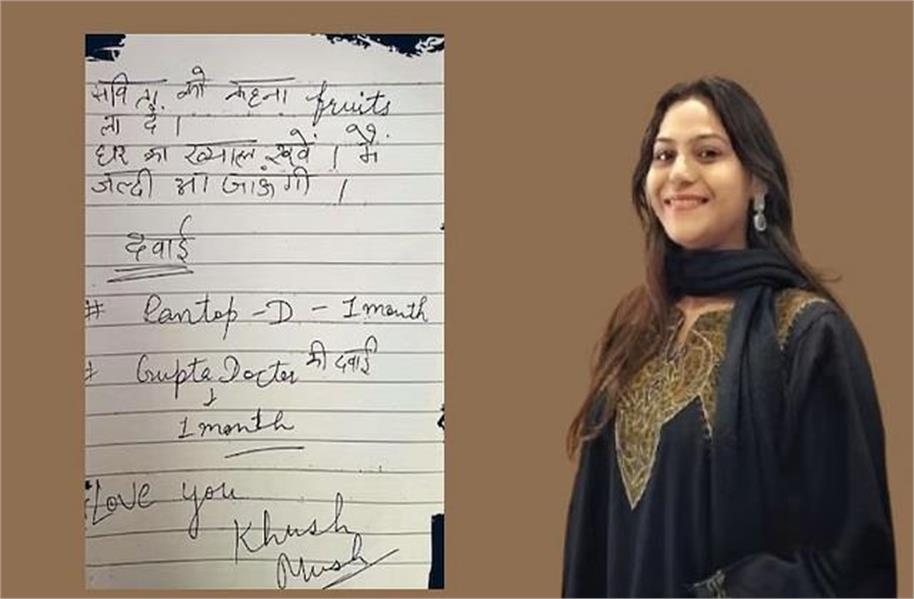 सविता को कहना fruits
ला दे ।
घर का ख्याल रखें । मैं
जल्दी आ जाऊंगी ।
दवाई
# Pantop-D - 1 month
# Gupta Doctor की दवाई
↓
1 month
Love you
Khush
Mush